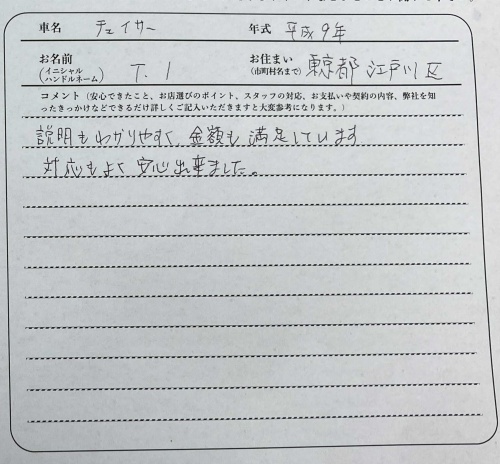 車名 チェイサー 年式 平成9年
お名前 (イニシャル ハンドルネーム) T.I お住まい (市町村名まで) 東京都 江戸川区
コメント（安心できたこと、お店選びのポイント、スタッフの対応、お支払いや契約の内容、弊社を知
ったきっかけなどできるだけ詳しくご記入いただきますと大変参考になります。）
説明もわかりやすく、金額も満足しています
対応もよく安心出来ました。